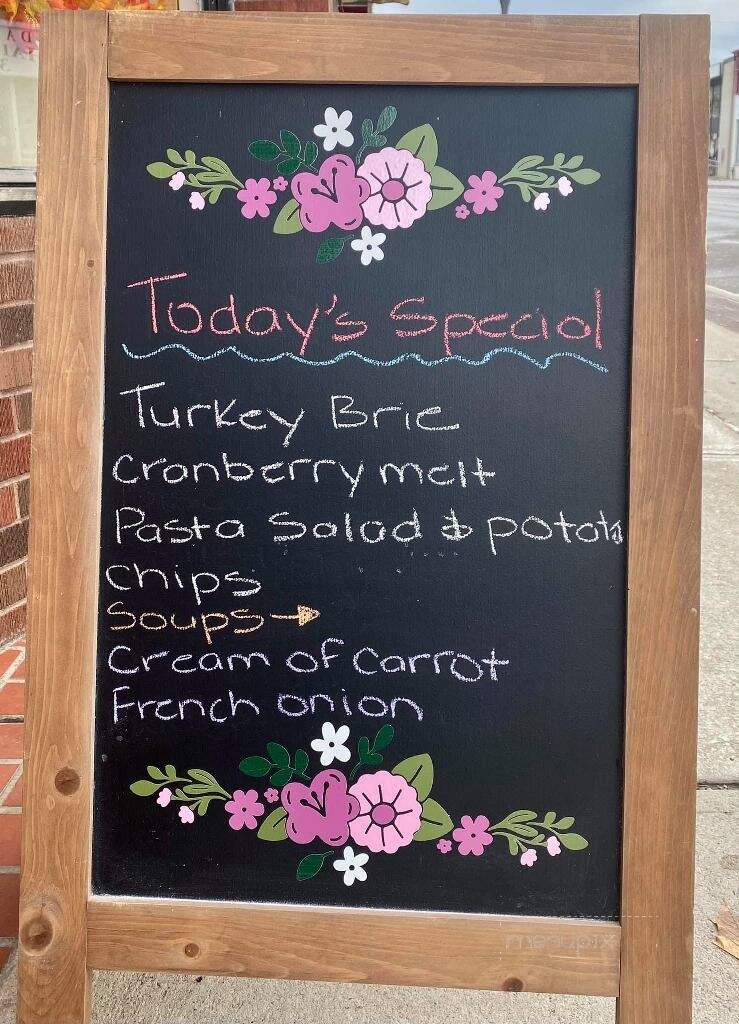 Today's Special
Turkey Brie
Cranberry melt
Pasta Salad & potato
chips
Soups →
Cream of Carrot
French onion
menupix